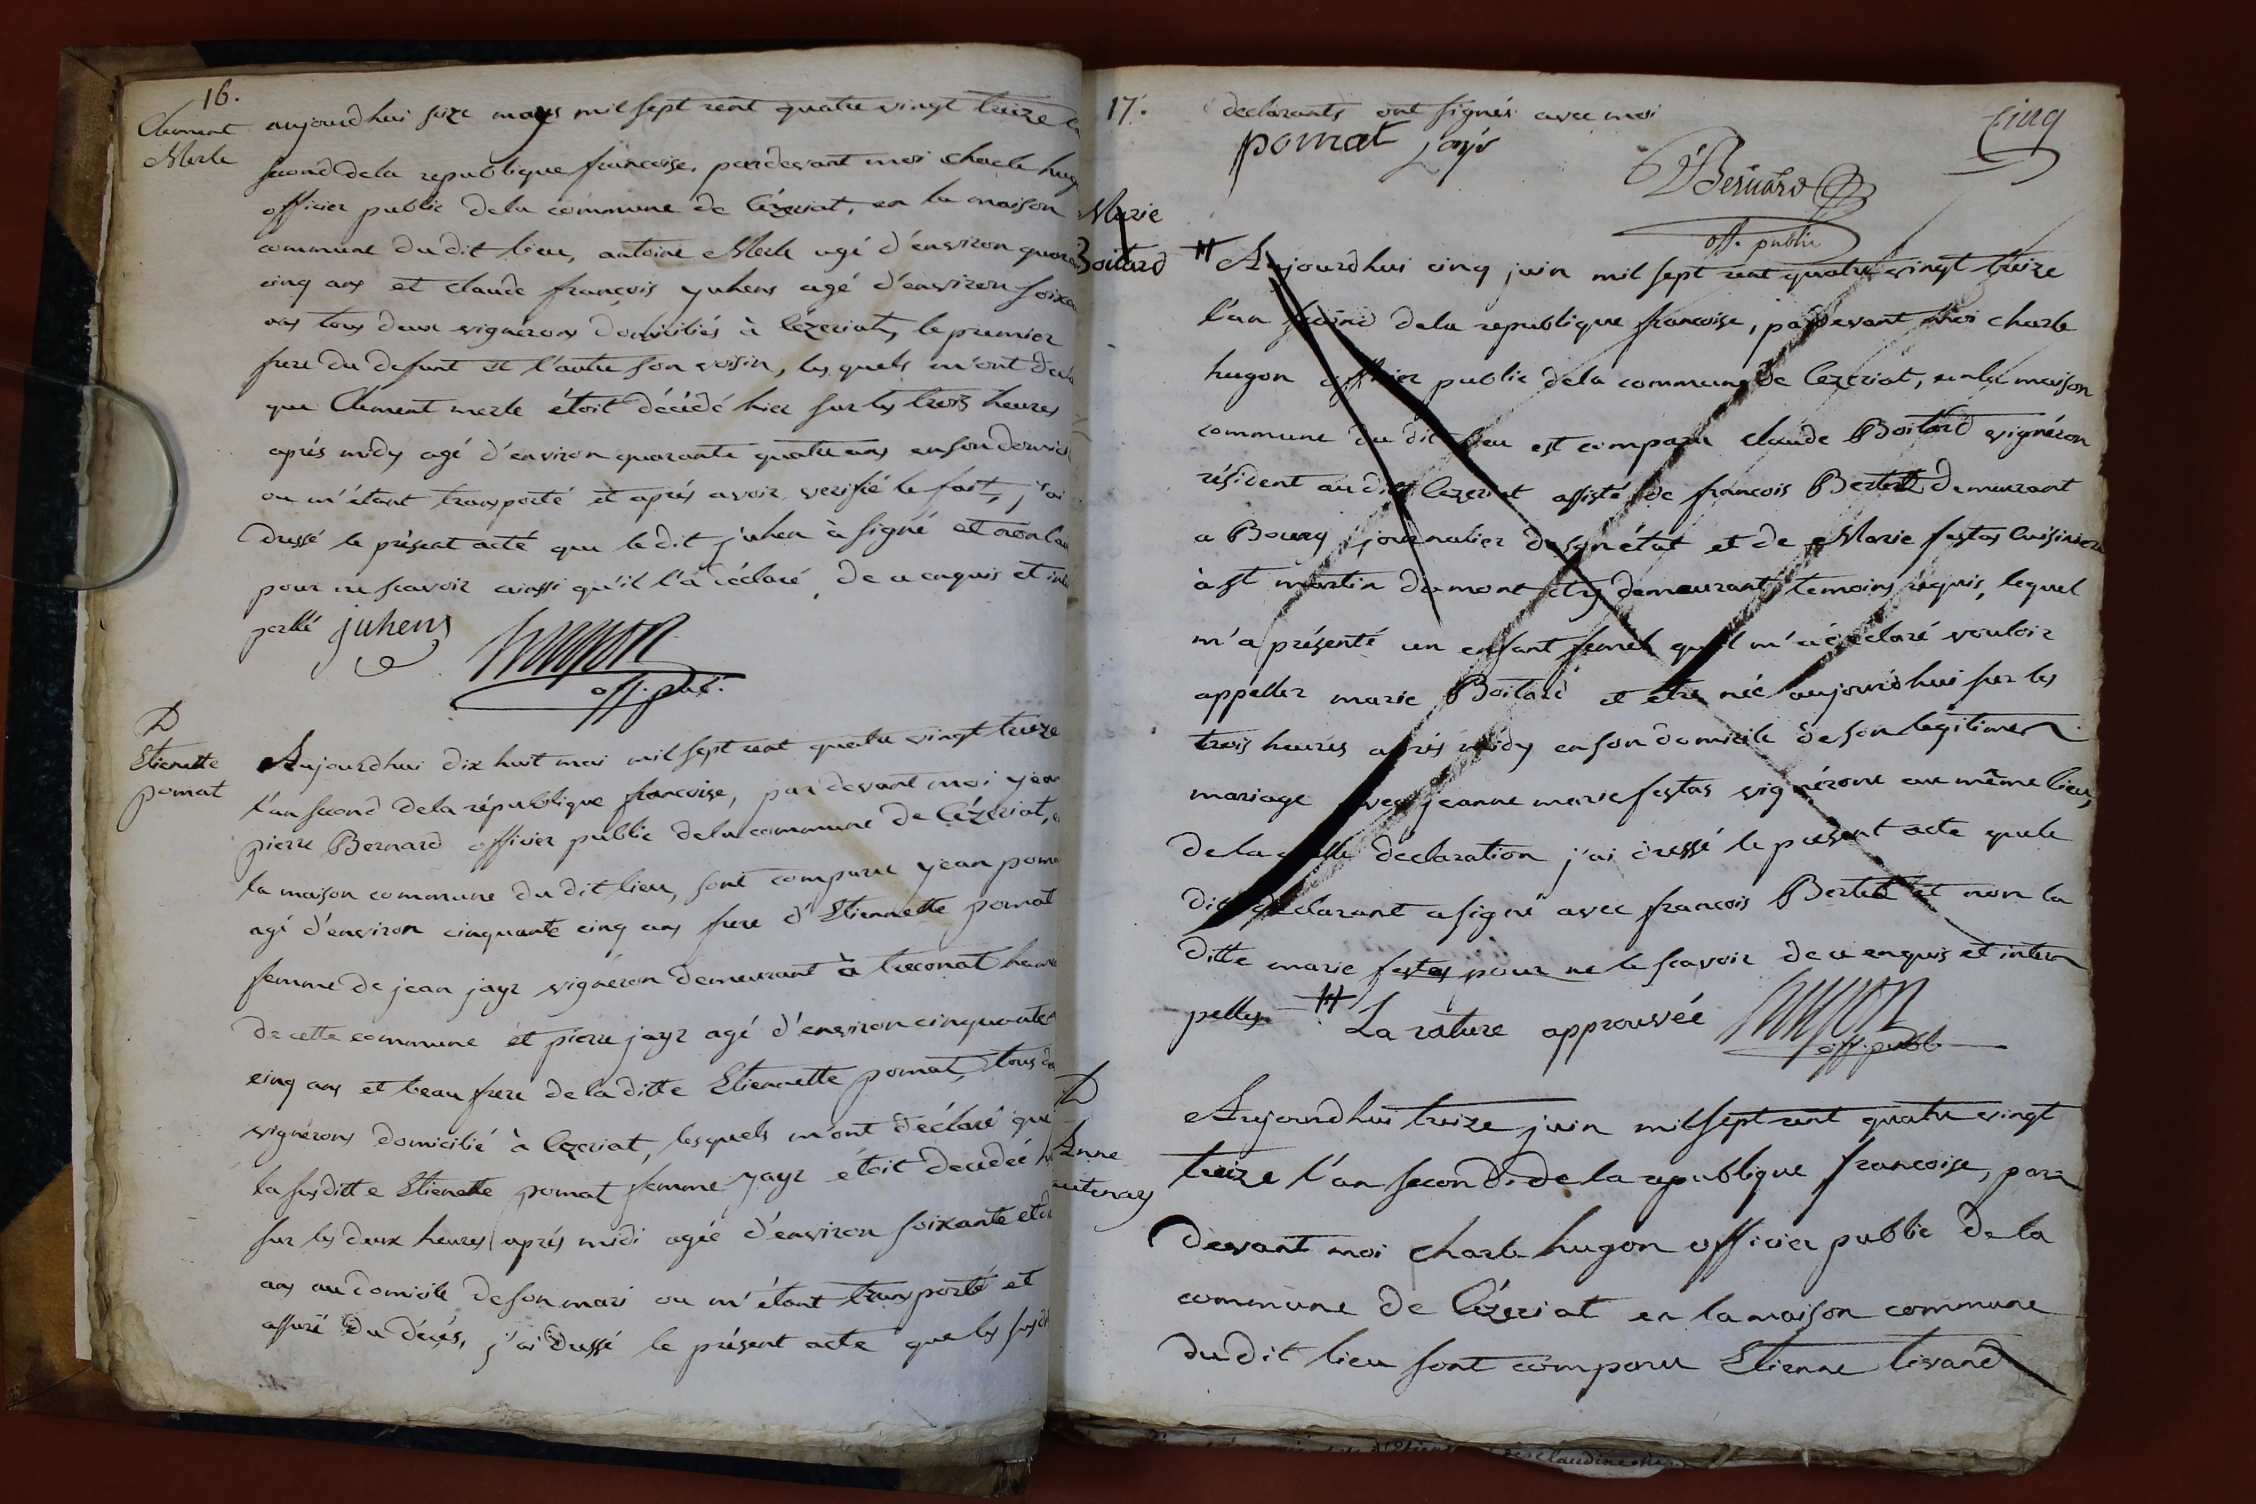 16.
Clement
Merle
aujourdhui seize mars mil sept cent quatre vingt treize
second de la republique francoise, pardevant moi charle hug
officier public de la commune de Cézeriat, en la maison
commune du dit lieu, antoine Merle agé d'environ quara
cinq ans et claude françois juhens agé d'environ soixa
ans tous deux vignerons domiciliés à Cézeriat, le premier
frere du defunt et l'autre son voisin, lesquels m'ont decla
que Clement merle étoit décédé hier sur les trois heures
aprés midy agé d'environ quarante quatre ans en son domici
ou m'étant transporté et aprés avoir verifié le fait, j'ai
dressé le présent acte que le dit juhen à signé et non l'au
pour ne scavoir ainssi qu'il l'a déclaré, de ce enquis et inte
pellé juhens
hugon
off. pub.
D
Etienette
pomat
Aujourdhui dix huit mai mil sept cent quatre vingt treize
l'an second de la république francoise, par devant moi jean
pierre Bernard officier public de la commune de Cézériat,
la maison commune du dit lieu, sont comparu jean poma
agé d'environ cinquante cinq ans frere d'Etiennette pomat
femme de jean jayr vigneron demeurant à treconat hame
de cette commune et pierre jayr agé d'environ cinquante
cinq ans et beau frere de la ditte Etiennette pomat, tous d
vignérons domicilié à Cezeriat, lesquels m'ont déclaré que
la susditte Etienette pomat femme jayr étoit decedeé h
sur les deux heures aprés midi agée d'environ soixante et d
ans au domicile de son mari ou m'étant transporté et
assuré du décés, j'ai dressé le présent acte que les susdi
17.
declarants ont signés avec moi
cinq
pomat jayr
Bernard
off. public
Marie
Boitard
Aujourdhui cinq juin mil sept cent quatre vingt treize
l'an second de la republique francoise, pardevant moi charle
hugon officier public de la commune de Cezeriat, en la maison
commune du dit lieu est comparu claude Boitard vignéron
résident au dit Cezeriat assisté de francois Bertet demeurant
a Bourg journalier de son état et de Marie festas Cuisiniere
à st martin du mont et y demeurant, temoins requis, lequel
m'a présenté un enfant femel qu'il m'a déclaré vouloir
appeller marie Boitard et etre née aujourdhui sur les
trois heures aprés midy en son domicile de son legitime
mariage avec jeanne marie festas vignérone au même lieu,
de laquelle déclaration j'ai dressé le présent acte que le
dit déclarant a signé avec francois Bertet et non la
ditte marie festas pour ne le scavoir de ce enquis et inter
pellés. La rature approuvée hugon
off. publ.
D
Anne
autenay
Aujourdhui treize juin mil sept cent quatre vingt
treize l'an second de la republique francoise, par
devant moi charle hugon officier public de la
commune de Cézeriat en la maison commune
du dit lieu sont comparu Etienne tivand